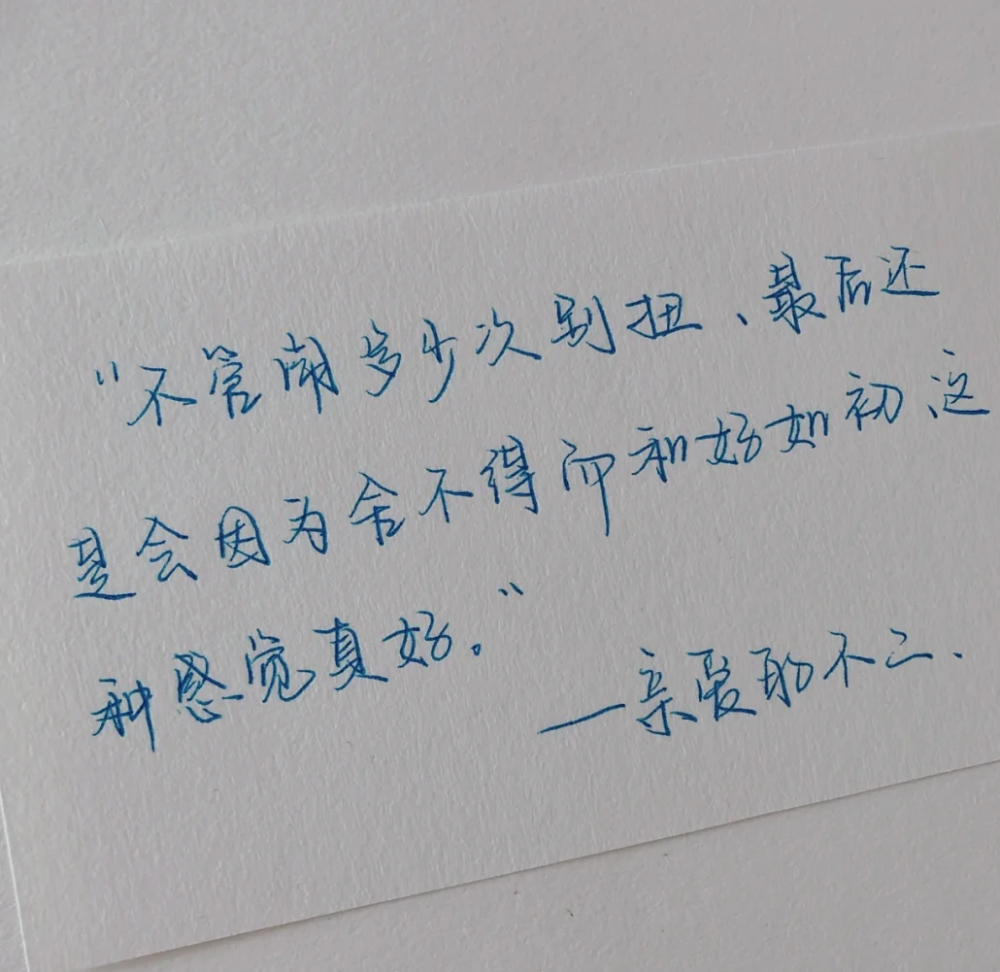 “不管闹多少次别扭、最后还
是会因为舍不得而和好如初、这
种感觉真好。”
——亲爱的不二.